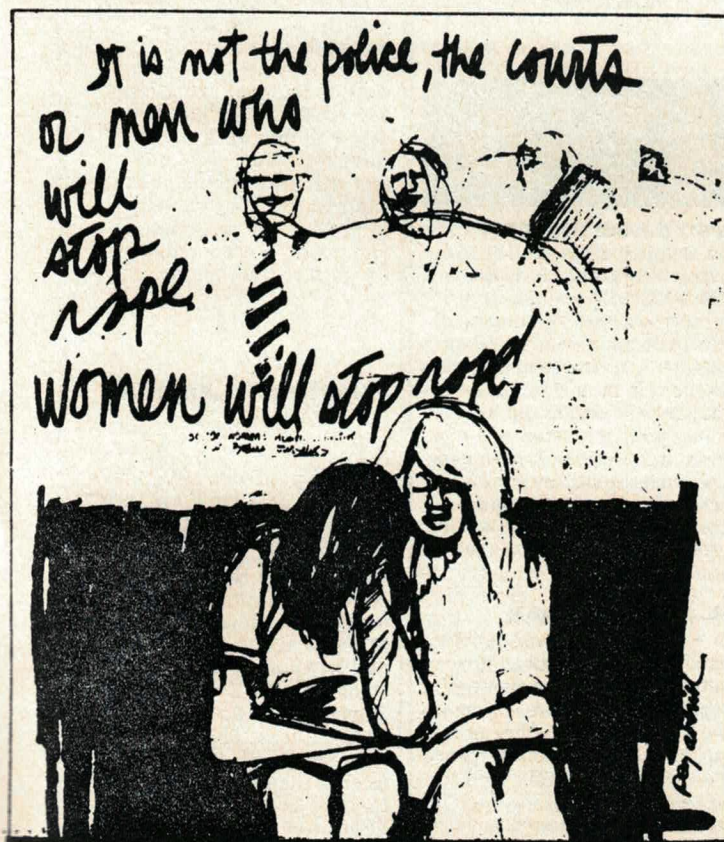 It is not the police, the courts
or men who
will
stop
rape.
Women will stop rape,
Peg Averill